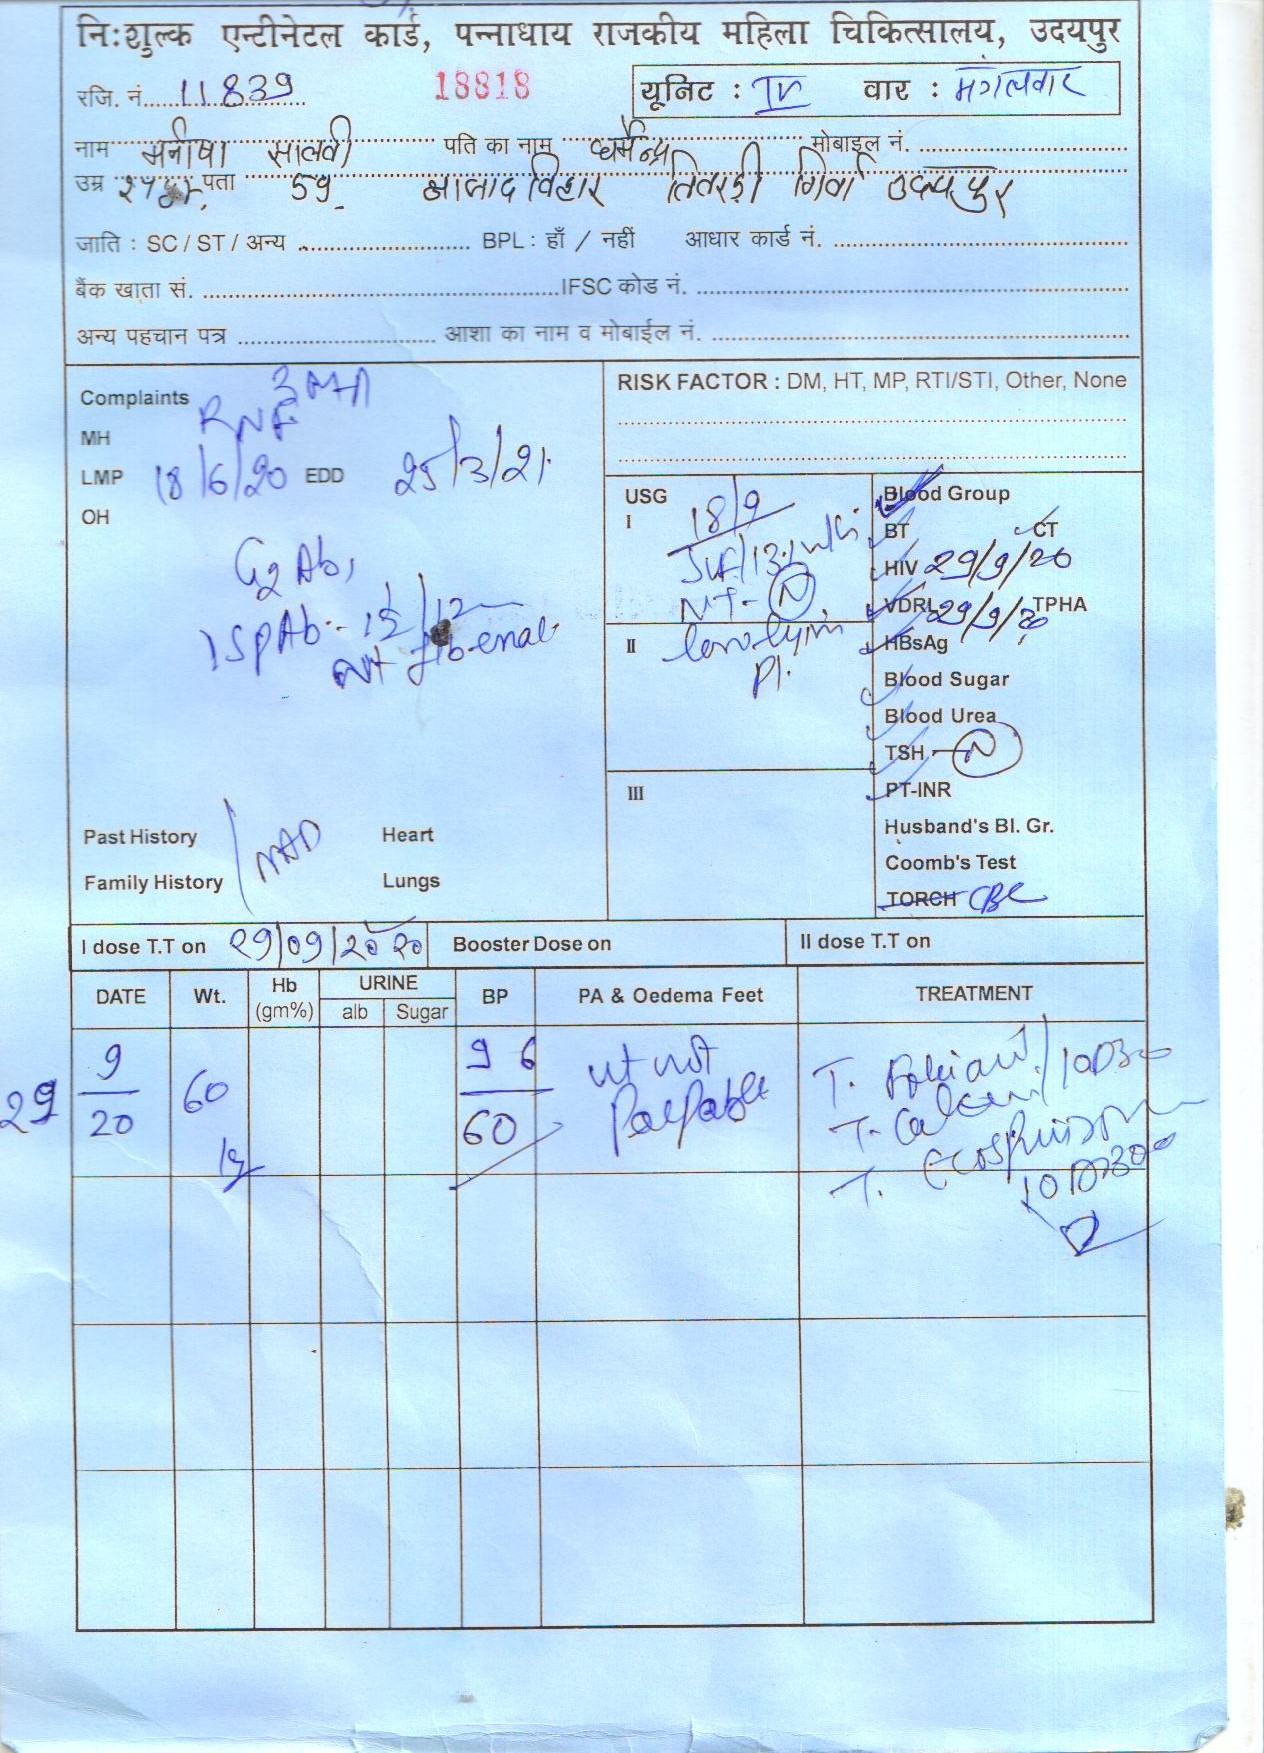 निःशुल्क एन्टीनेटल कार्ड, पन्नाधाय राजकीय महिला चिकित्सालय, उदयपुर
रजि. नं. 11839 18818 यूनिट : IV वार : मंगलवार
नाम मनीषा सालवी पति का नाम धर्मेन्द्र मोबाइल नं.
उम्र पता 59 आजाद विहार तितरडी गिर्वा उदयपुर
जाति : SC / ST / अन्य BPL : हाँ / नहीं आधार कार्ड नं.
बैंक खाता सं. IFSC कोड नं.
अन्य पहचान पत्र आशा का नाम व मोबाईल नं.
Complaints
MH
LMP 18/6/20 EDD 25/3/21
OH
G2 Ab1
Past History NAD Heart
Family History Lungs
RISK FACTOR : DM, HT, MP, RTI/STI, Other, None
USG
I 18/9
NT - N
II
Pl.
III
Blood Group
BT CT
HIV 29/9/20
VDRL 29/9/20 TPHA
HBsAg
Blood Sugar
Blood Urea
TSH N
PT-INR
Husband's Bl. Gr.
Coomb's Test
TORCH CBC
I dose T.T on 29/09/2020 Booster Dose on II dose T.T on
DATE Wt. Hb (gm%) URINE alb Sugar BP PA & Oedema Feet TREATMENT
29 9/20 60 kg 96/60 ut not Palpable
T. Calcium
T. Ecosprin